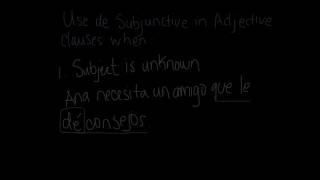 Use de Subjunctive in Adjective
Clauses when:
1. Subject is unknown
Ana necesita un amigo que le
dé consejos